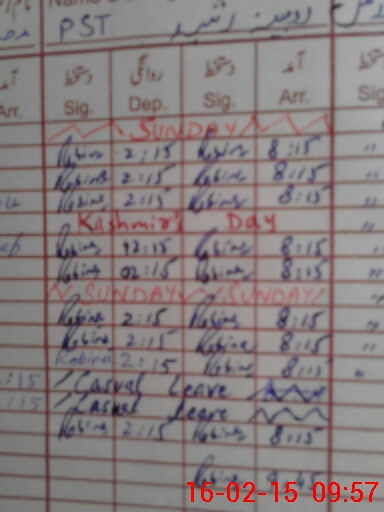 PST روبینہ رشید
دستخط روانگی دستخط آمد
Arr. Sig. Dep. Sig. Arr. Sig
SUNDAY
Robina 2:15 Robina 8:15 "
Robina 2:15 Robina 8:15 "
Robina 2:15 Robina 8:15 "
Kashmir's Day "
Robina 12:15 Robina 8:15 "
Robina 02:15 Robina 8:15 "
SUNDAY SUNDAY
Robina 2:15 Robina 8:15 "
Robina 2:15 Robina 8:15 "
Robina 2:15 Robina 8:15 "
:15 Casual Leave
:15 Casual leave
Robina 2:15 Robina 8:15
Robina
16-02-15 09:57